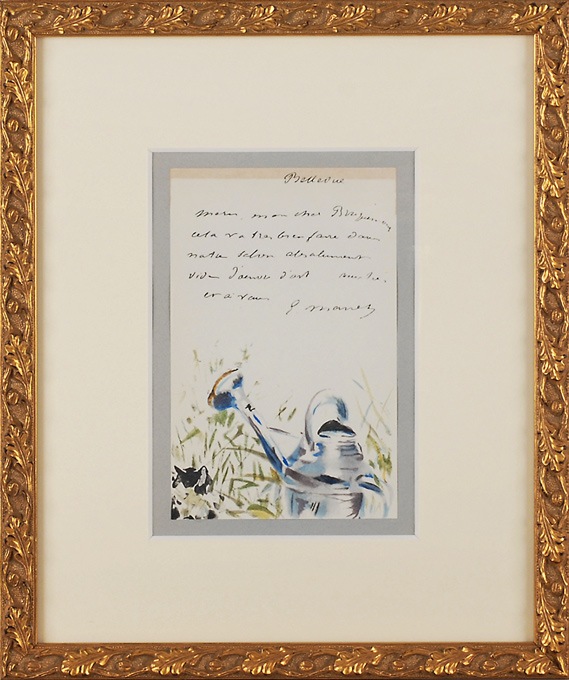 Bellevue
merci mon cher Bracquemond
cela va très bien faire dans
notre salon absolument
vide d'œuvre d'art
et à vous
E Manet